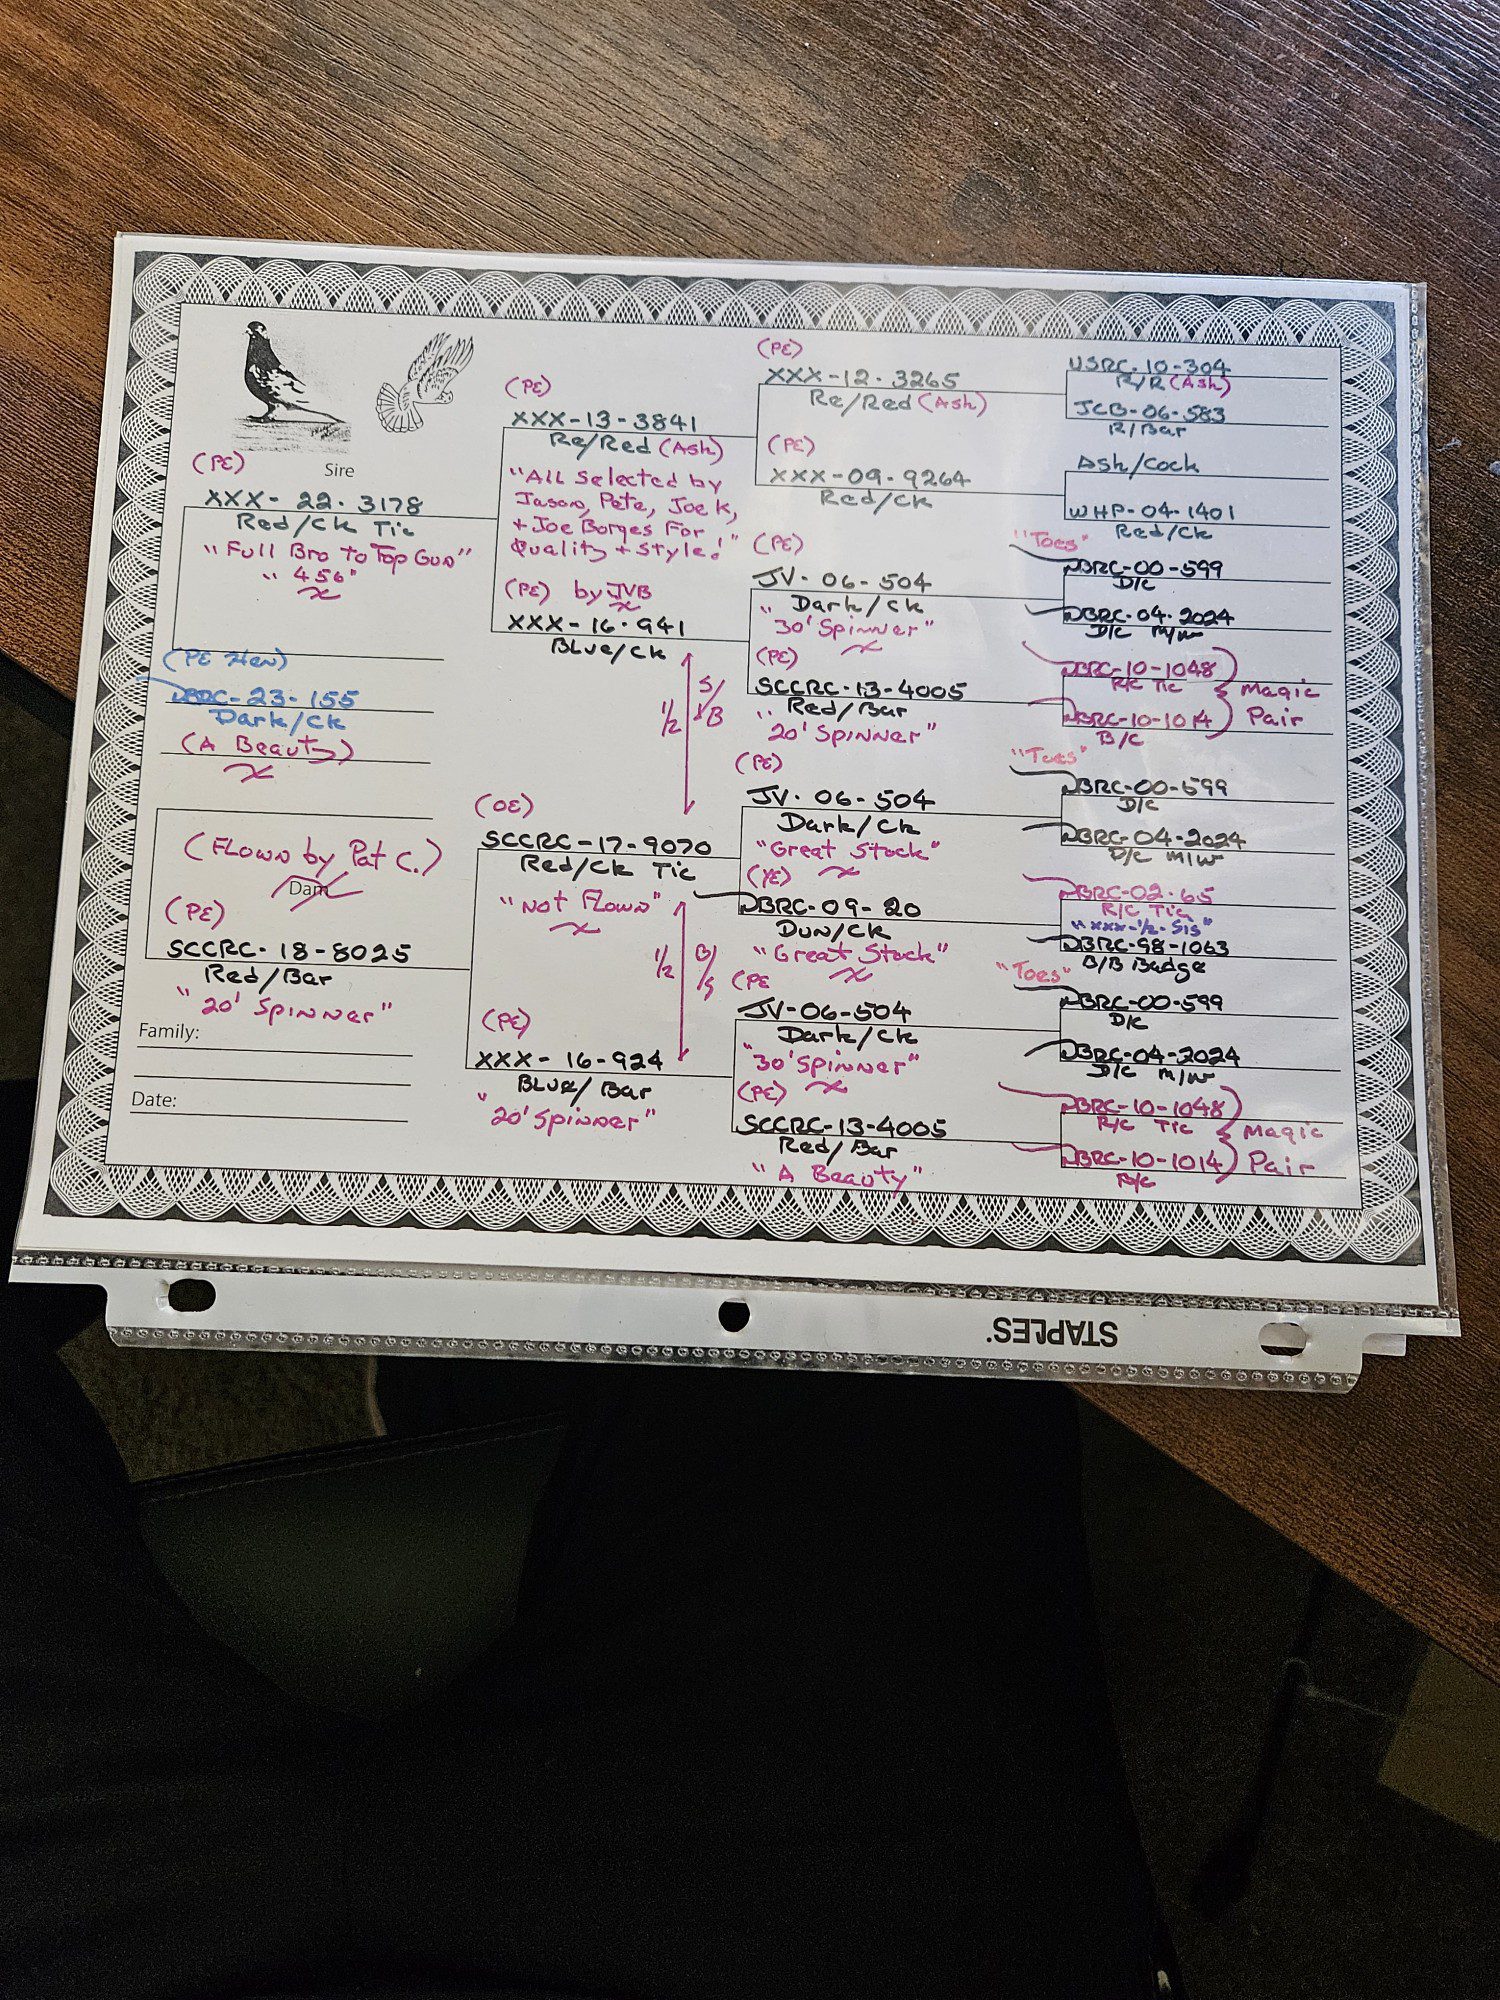 (PE)
Sire
XXX-22-3178
Red/Ck Tic
"Full Bro to Top Gun"
"456"
(PE Hen)
155
Dark/Ck
(A Beauty)
(Flown by Pat C.)
Dam
(PE)
SCCRC-18-8025
Red/Bar
"20' Spinner"
Family:
Date:
(PE)
XXX-13-3841
Re/Red (Ash)
"All Selected by
Jason, Pete, Joe K,
+ Joe Borges For
Quality + Style!"
(PE) by JVB
XXX-16-941
Blue/Ck
1/2
(OE)
SCCRC-17-9070
Red/Ck Tic
"Not Flown"
1/2 B/S
(PE)
XXX-16-924
Blue/Bar
"20' Spinner"
(PE)
XXX-12-3265
Re/Red (Ash)
(PE)
XXX-09-9264
Red/Ck
(PE)
JV-06-504
Dark/Ck
"30' Spinner"
(PE)
SCCRC-13-4005
Red/Bar
"20' Spinner"
(PE)
JV-06-504
Dark/Ck
"Great Stock"
(YE)
DBRC-09-20
Dun/Ck
"Great Stock"
(PE
JV-06-504
Dark/Ck
"30' Spinner"
(PE)
SCCRC-13-4005
Red/Bar
"A Beauty"
USRC-10-304
R/R (Ash)
JCB-06-583
R/Bar
Ash/Cock
WHP-04-1401
Red/Ck
"Toes"
DBRC-00-599
D/C
DBRC-04-2024
D/C M/W
DBRC-10-1048
R/C Tic
Magic
DBRC-10-1014
Pair
B/C
"Toes"
DBRC-00-599
D/C
DBRC-04-2024
D/C M/W
DBRC-02-65
R/C Tic
"XXX-1/2-Sis"
DBRC-98-1063
B/B Badge
"Toes"
DBRC-00-599
D/C
DBRC-04-2024
D/C M/W
DBRC-10-1048
R/C Tic
Magic
DBRC-10-1014
Pair
B/C
STAPLES